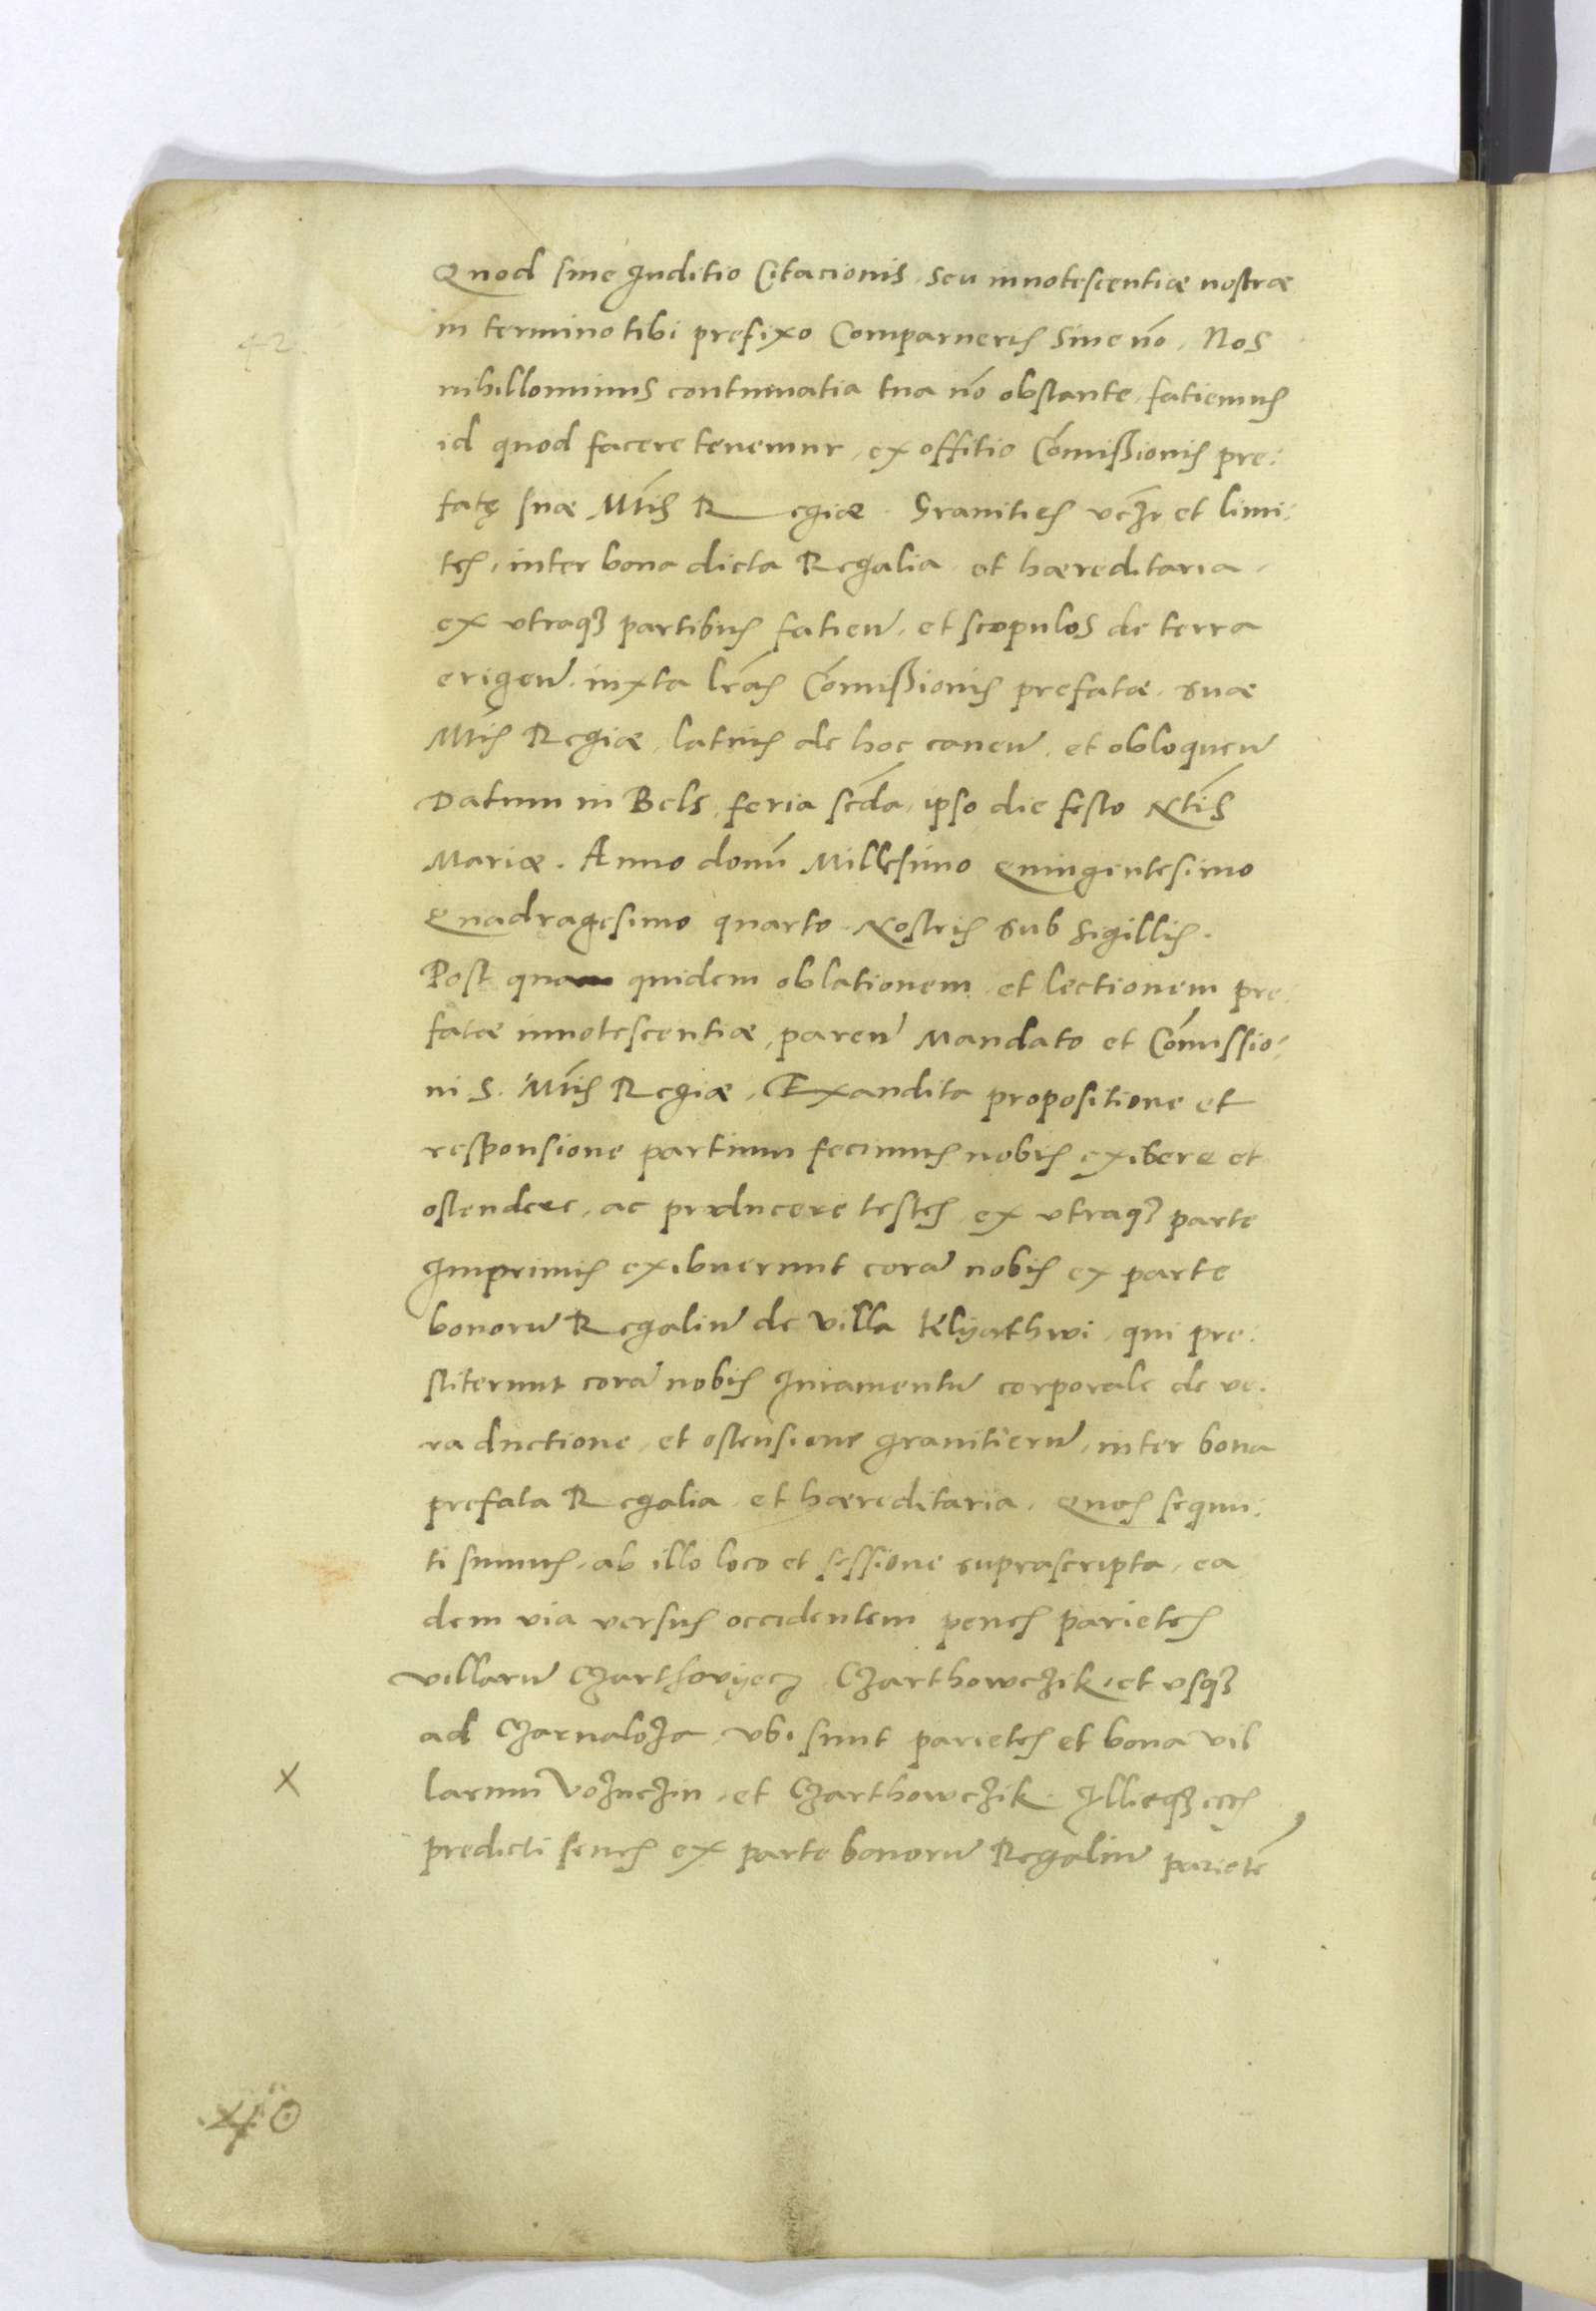 Quod siue Juditio Citacionis, seu innotescentiæ nostræ
42.
in termino tibi prefixo Comparueris siue nō, Nos
nihillominus contumatia tua nō obstante, fatiemus
id quod facere tenemur, ex offitio Cōmißionis pre:
fatę suæ Mtis Regiæ. Granities vcz et limi:
tes, inter bona dicta Regalia et hæreditaria,
ex vtraqȝ partibus fatieñ, et scopulos de terra
erigeñ iuxta lrās Cōmißionis prefatæ suæ
Mtis Regiæ, latius de hoc caneñ et obloqueñ
Datum in Bels feria scda, ipso die festo Ntis
Mariæ. Anno domi Millesimo Quingentesimo
Quadragesimo quarto Nostris sub sigillis.
Post quam quidem oblationem et lectionem pre:
fatæ innotescentiæ, pareñ Mandato et Cōmissio:
ni S. Mtis Regiæ, Exaudita propositione et
responsione partium fecimus nobis exibere et
ostendere, ac producere testes ex vtraqȝ parte
Imprimis exibuerunt corā nobis ex parte
bonorū Regaliū de villa Klyathwi, qui pre:
stiterunt corā nobis Juramentū corporale de ve:
ra ductione, et ostensione granitierū, inter bona
prefata Regalia et hæreditaria, Quos sequu:
ti sumus, ab illo loco et sessione suprascripta, ea
dem via versus occidentem penes parietes
villarū Czarthovyecz Czarthowczik, et vsqȝ
ad Czarnaloza, vbi sunt parietes et bona vil
X
larum Vozuczin, et Czarthowczik Illicqȝ
predicti senes ex parte bonorū Regaliū parietē
40